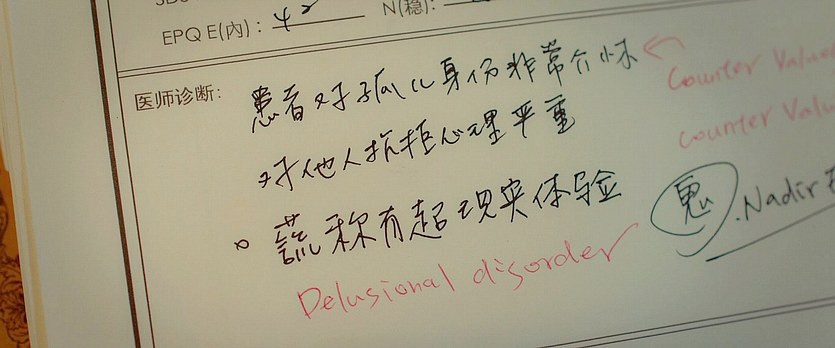 EPQ E(内)： 42
N(稳)：
医师诊断： 患者对孤儿身份非常介怀
Counter Value
对他人抗拒心理严重
Counter Valu
谎称有超现实体验
鬼 .Nadir
Delusional disorder